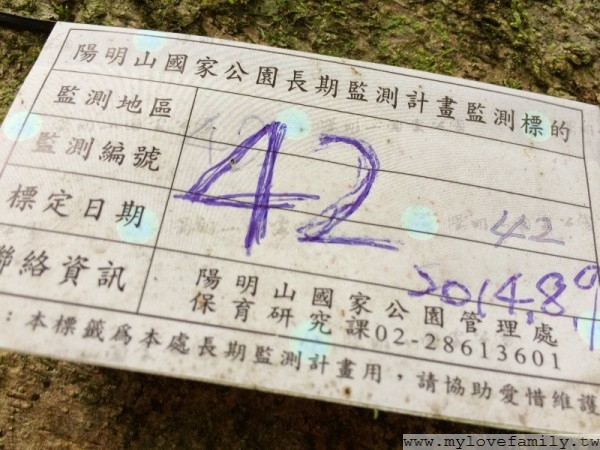 陽明山國家公園長期監測計畫監測標的
監測地區
監測編號
42
42
標定日期
2014.8.9
聯絡資訊
陽明山國家公園管理處
保育研究課02-28613601
：本標籤為本處長期監測計畫用，請協助愛惜維護
www.mylovefamily.tw